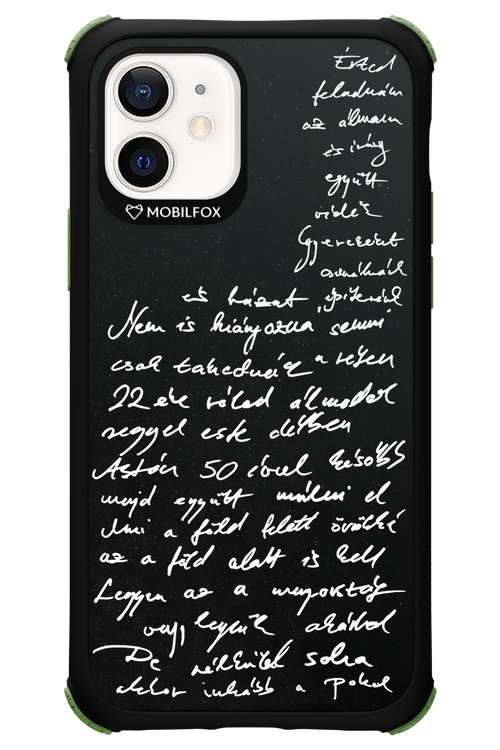 MOBILFOX
Érted
feladnám
az álmaim
és így
együtt
Gyerekeket
csinálnánk
és házat építenénk
Nem is hiányozna semmi
csak takednék a részem
22 éve rólad álmodok
reggel este délben
Aztán 50 évvel később
majd együtt múlni el
Ami a föld felett örökké
az a föld alatt is kell
Legyen az a mennyország
vagy legyünk akárhol
De nélküled soha
akkor inkább a Pokol